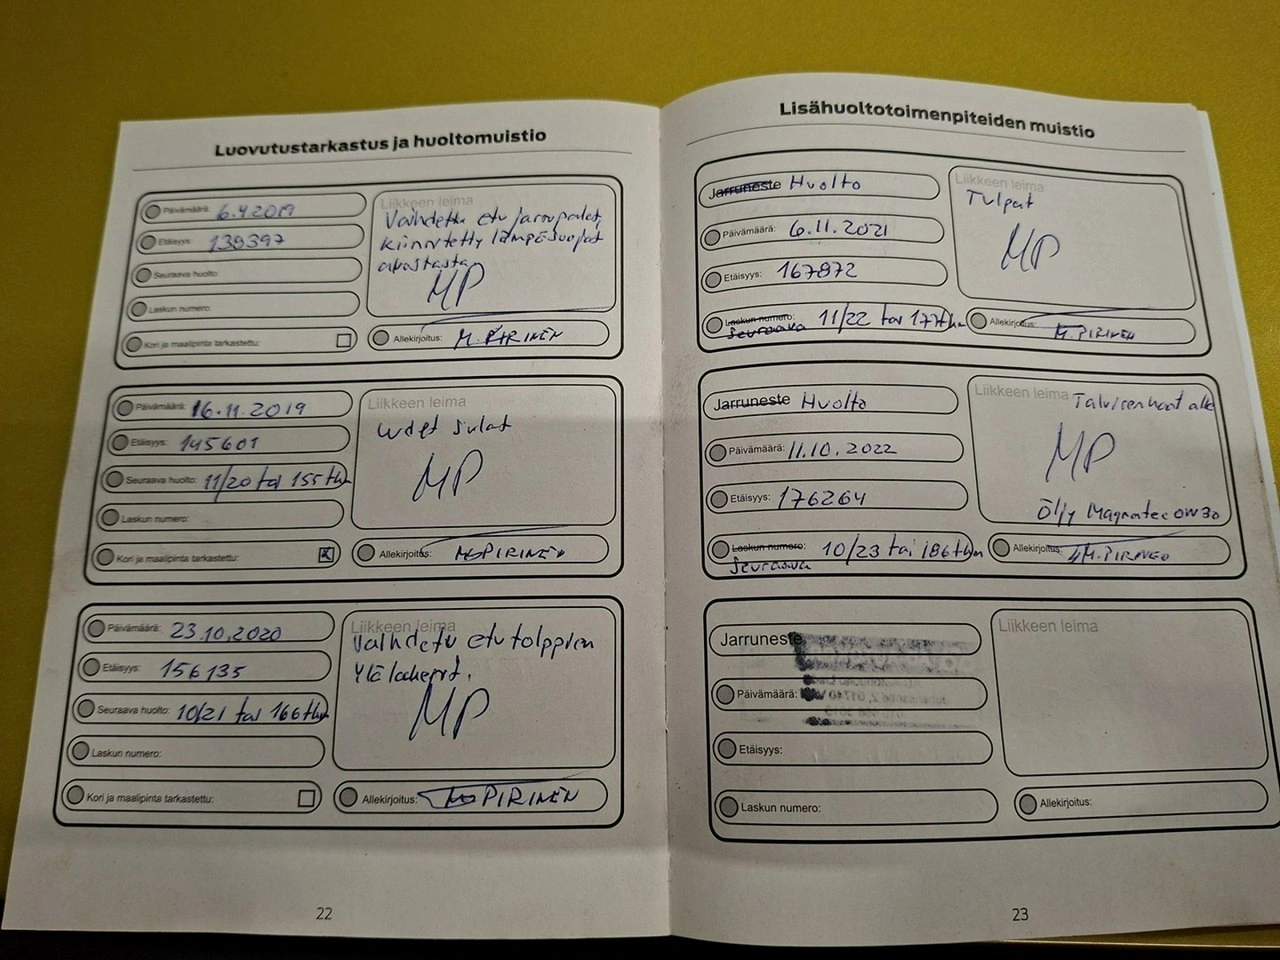 Luovutustarkastus ja huoltomuistio
Päivämäärä: 6.4.2019
Etäisyys: 138397
Seuraava huolto:
Laskun numero:
Kori ja maalipinta tarkastettu:
Liikkeen leima
Vaihdettu etu jarrupalat,
kiinnitetty lämpösuojat
MP
Allekirjoitus: M. PIRINEN
Päivämäärä: 16.11.2019
Etäisyys: 145601
Seuraava huolto: 11/20 tai 155 tkm
Laskun numero:
Kori ja maalipinta tarkastettu: X
Liikkeen leima
MP
Allekirjoitus: PIRINEN
Päivämäärä: 23.10.2020
Etäisyys: 156135
Seuraava huolto: 10/21 tai 166 tkm
Laskun numero:
Kori ja maalipinta tarkastettu:
Liikkeen leima
Vaihdettu etu tolppien
MP
Allekirjoitus: PIRINEN
22
Lisähuoltotoimenpiteiden muistio
Jarruneste Huolto
Päivämäärä: 6.11.2021
Etäisyys: 167872
Laskun numero: 11/22 tai 177 tkm
Seuraava
Liikkeen leima
Tulpat
MP
Allekirjoitus: M. PIRINEN
Jarruneste Huolto
Päivämäärä: 11.10.2022
Etäisyys: 176264
Laskun numero: 10/23 tai 186 tkm
Seuraava
Liikkeen leima Talvirenkaat alle
MP
Öljy Magnatec 0W30
Allekirjoitus: M. PIRINEN
Jarruneste
Päivämäärä:
Etäisyys:
Laskun numero:
Liikkeen leima
Allekirjoitus:
23